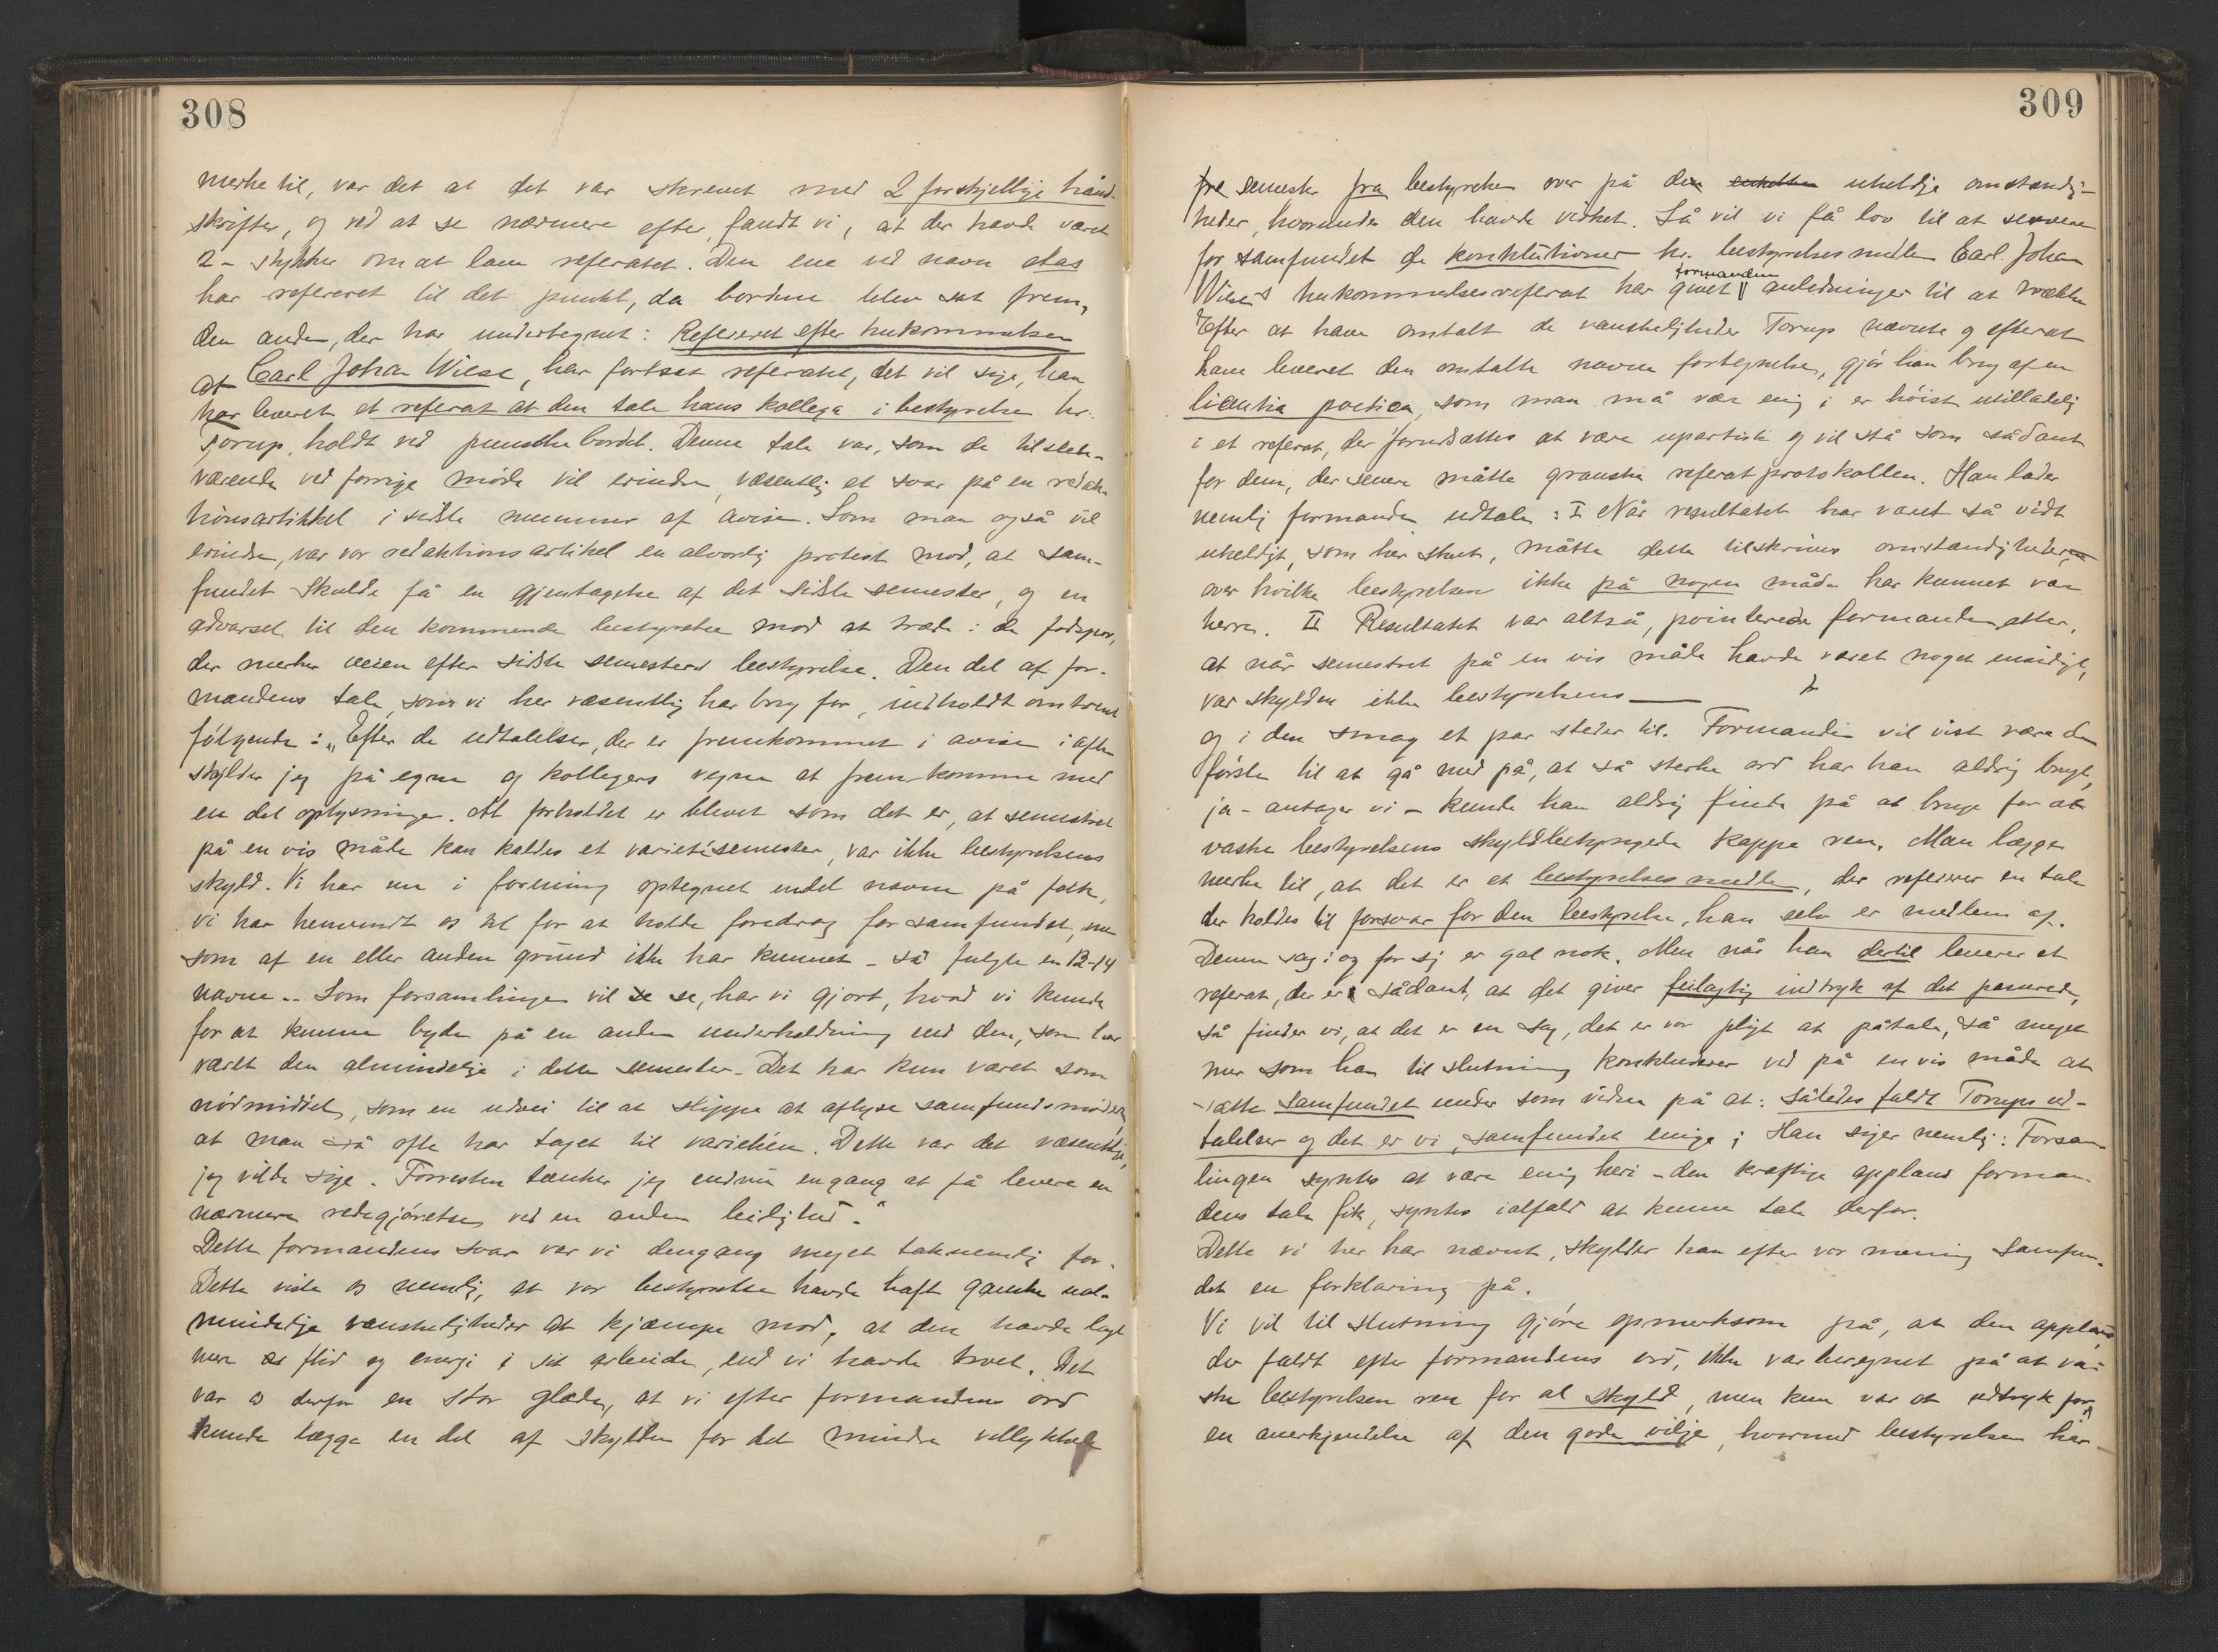 308
merke til, var det at det var skrevet med 2 forskjellige hånd-
skrifter, og ved at se nærmere efter, fandt vi, at der havde været
2 - stykker om at lave referatet. Den ene ved navn
har refereret til det punkt, da bordene blev sat frem,
den anden, der har undertegnet: Refereret efter hukommelsen
af Carl Johan Wiese, har fortsat referatet, det vil sige, han
har leveret et referat at den tale hans kollega i bestyrelsen hr.
Torup, holdt ved punschebordet. Denne tale var, som de tilstede-
værende ved forrige møde vil erindre, væsentlig et svar på en redak-
tionsartikkel i sidste nummer af avisen. Som man også vil
erindre, var vor redaktionsartikel en alvorlig protest mod, at sam-
fundet skulde få en gjentagelse af det sidste semester, og en
advarsel til den kommende bestyrelse mod at træde i de fodspor,
der merker veien efter sidste semesters bestyrelse. Den del af for-
mandens tale, som vi her væsentlig har brug for, indholdt omtrent
følgende: „Efter de udtalelser, der er fremkommet i avisen i aften
skylder jeg på egne og kollegers vegne at fremkomme med
en del oplysninger. At forholdet er blevet som det er, at semestret
på en vis måde kan kaldes et varietésemester, var ikke bestyrelsens
skyld. Vi har nu i forening optegnet endel navne på folk,
vi har henvendt os til for at holde foredrag for samfundet, men
som af en eller anden grund ikke har kunnet - så fulgte en 12-14
navne.. Som forsamlingen vil se se, har vi gjort, hvad vi kunde
for at kunne byde på en anden underholdning end den, som har
været den almindelige i dette semester. Det har kun været som
nødmiddel, som en udvei til at slippe at aflyse samfundsmøder,
at man så ofte har taget til varietéen. Dette var det væsentlige,
jeg vilde sige. Forresten tænker jeg endnu engang at få levere en
nærmere redegjørelse ved en anden leilighed."
Dette formandens svar var vi dengang meget taknemlig for.
Dette viste os nemlig, at vor bestyrelse havde haft ganske ual-
mindelige vanskeligheder at kjæmpe mod, at den havde lagt
mere flid og energi i sit arbeide, end vi havde troet. Det
var os derfor en stor glæde, at vi efter formandens ord
kunde lægge en del af skylden for det mindre vellykkede
309
fre semester fra bestyrelsen over på de uheldige omstændig-
heder, hvorunder den havde virket. Så vil vi få lov til at servere
for samfundet de konklutioner hr. bestyrelsesmedlem Carl Johan
Wieses hukommelsesreferat har givet formanden anledninger til at trække
Efter at have omtalt de vanskeligheder Torup nævnte og efterat
have leveret den omtalte navne fortegnelse, gjør han brug af en
licentia poetica, som man må være enig i er høist utilladelig
i et referat, der forudsættes at være upartisk og vil stå som sådant
for dem, der senere måtte granske referatprotokollen. Han lader
nemlig formanden udtale: I Når resultatet har været så vidt
uheldigt, som her skeet, måtte dette tilskrives omstændigheder,
over hvilke bestyrelsen ikke på nogen måde har kunnet være
herre. II Resultatet var altså, pointerede formanden atter,
at når semestret på en vis måde havde været noget ensidigt,
var skylden ikke bestyrelsens —
og i den smag et par steder til. Formanden vil vist være den
første til at gå med på, at så sterke ord har han aldrig brugt,
ja - antager vi - kunde han aldrig finde på at bruge for at
vaske bestyrelsens skyldbetyngede kappe ren. Man lægge
merke til, at det er et bestyrelsesmedlem, der refererer en tale
der holdes til forsvar for den bestyrelse, han selv er medlem af.
Denne sag i og for sig er gal nok. Men når han dertil leverer et
referat, der er sådant, at det giver feilagtig indtryk af det passerede,
så finder vi, at det er en sag, det er vor pligt at påtale, så meget
mer som han til slutning konkluderer ved på en vis måde at
sætte samfundet under som vidne på at: således faldt Torups ud-
talelser og det er vi, samfundet enige i Han siger nemlig: Forsam-
lingen syntes at være enig heri - den kraftige applaus forman-
dens tale fik, syntes ialfald at kunne tale derfor.
Dette vi her har nævnt, skylder han efter vor mening samfun-
det en forklaring på.
Vi vil til slutning gjøre opmerksom på, at den applaus
der faldt efter formandens ord, ikke var beregnet på at va-
ske bestyrelsen ren for al skyld, men kun var et udtryk for
en anerkjendelse af den gode vilje, hvormed bestyrelsen har